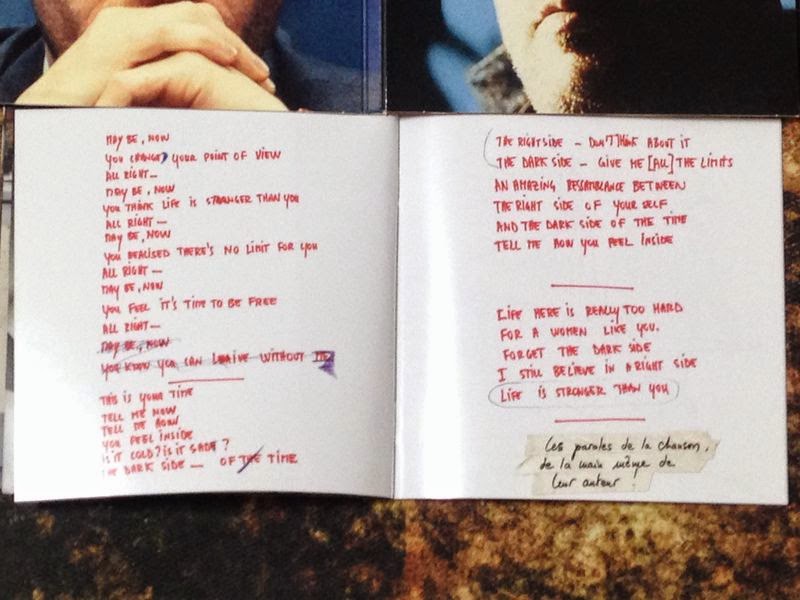 MAY BE, NOW
YOU CHANGED YOUR POINT OF VIEW
ALL RIGHT—
MAY BE, NOW
YOU THINK LIFE IS STRONGER THAN YOU
ALL RIGHT —
MAY BE, NOW
YOU REALISED THERE'S NO LIMIT FOR YOU
ALL RIGHT —
MAY BE, NOW
YOU FEEL IT'S TIME TO BE FREE
ALL RIGHT—
MAY BE, NOW
YOU KNOW YOU CAN LEAIVE WITHOUT ME
THIS IS YOUR TIME
TELL ME NOW
TELL ME HOW
YOU FEEL INSIDE
IS IT COLD? IS IT SAFE?
THE DARK SIDE — OF THE TIME
THE RIGHT SIDE — DON'T THINK ABOUT IT
THE DARK SIDE — GIVE ME [ALL] THE LIMITS
AN AMAZING RESSEMBLANCE BETWEEN
THE RIGHT SIDE OF YOUR SELF
AND THE DARK SIDE OF THE TIME
TELL ME HOW YOU FEEL INSIDE
LIFE HERE IS REALLY TOO HARD
FOR A WOMEN LIKE YOU.
FORGET THE DARK SIDE
I STILL BELIEVE IN A RIGHT SIDE
LIFE IS STRONGER THAN YOU
Les paroles de la chanson,
de la main même de
leur auteur !